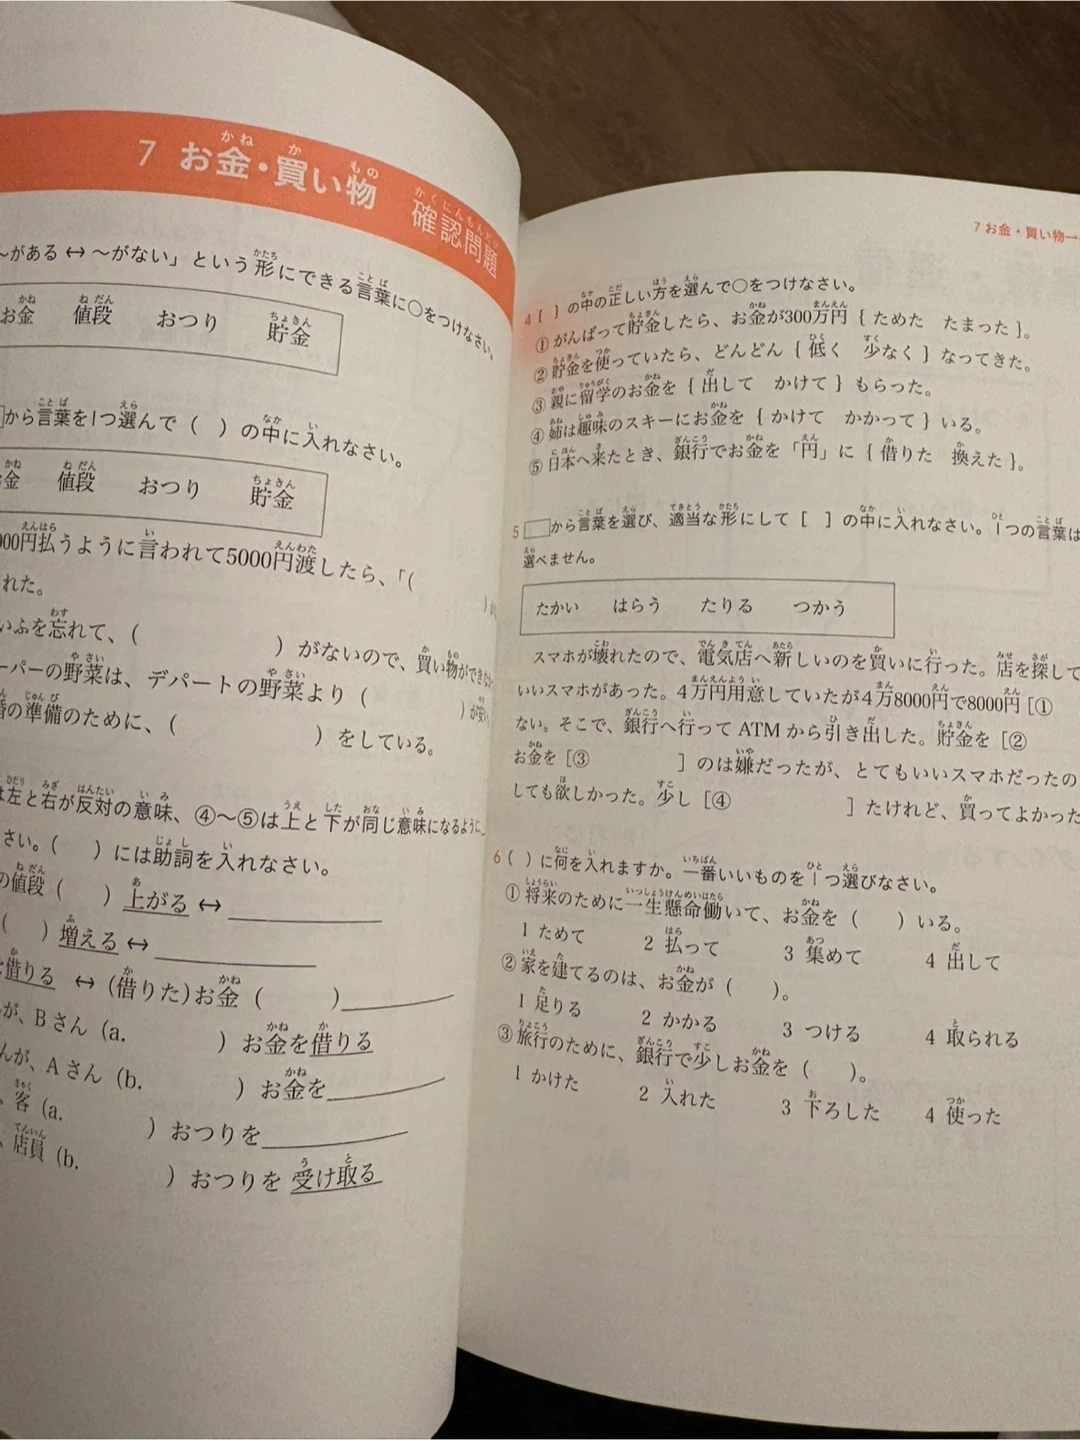 7 お金・買い物 確認問題
～がある ↔ ～がない」という形にできる言葉に○をつけなさい。
お金 値段 おつり 貯金
から言葉を1つ選んで（ ）の中に入れなさい。
金 値段 おつり 貯金
000円払うように言われて5000円渡したら、「（ ）
れた。
いふを忘れて、（ ）がないので、買い物ができな
ーパーの野菜は、デパートの野菜より（ ）が安い
の準備のために、（ ）をしている。
は左と右が反対の意味、④～⑤は上と下が同じ意味になるように
さい。（ ）には助詞を入れなさい。
の値段（ ）上がる ↔
（ ）増える ↔
借りる ↔ (借りた)お金（ ）
が、Bさん（a. ）お金を借りる
んが、Aさん（b. ）お金を
、客（a. ）おつりを
、店員（b. ）おつりを 受け取る
7 お金・買い物―
4 { }の中の正しい方を選んで○をつけなさい。
① がんばって貯金したら、お金が300万円 { ためた たまった }。
② 貯金を使っていたら、どんどん { 低く 少なく } なってきた。
③ 親に留学のお金を { 出して かけて } もらった。
④ 姉は趣味のスキーにお金を { かけて かかって } いる。
⑤ 日本へ来たとき、銀行でお金を「円」に { 借りた 換えた }。
5 から言葉を選び、適当な形にして［ ］の中に入れなさい。1つの言葉は
選べません。
たかい はらう たりる つかう
スマホが壊れたので、電気店へ新しいのを買いに行った。店を探して
いいスマホがあった。4万円用意していたが4万8000円で8000円［①
ない。そこで、銀行へ行ってATMから引き出した。貯金を［②
お金を［③ ］のは嫌だったが、とてもいいスマホだったの
しても欲しかった。少し［④ ］たけれど、買ってよかった
6 （ ）に何を入れますか。一番いいものを1つ選びなさい。
① 将来のために一生懸命働いて、お金を（ ）いる。
1 ためて 2 払って 3 集めて 4 出して
② 家を建てるのは、お金が（ ）。
1 足りる 2 かかる 3 つける 4 取られる
③ 旅行のために、銀行で少しお金を（ ）。
1 かけた 2 入れた 3 下ろした 4 使った